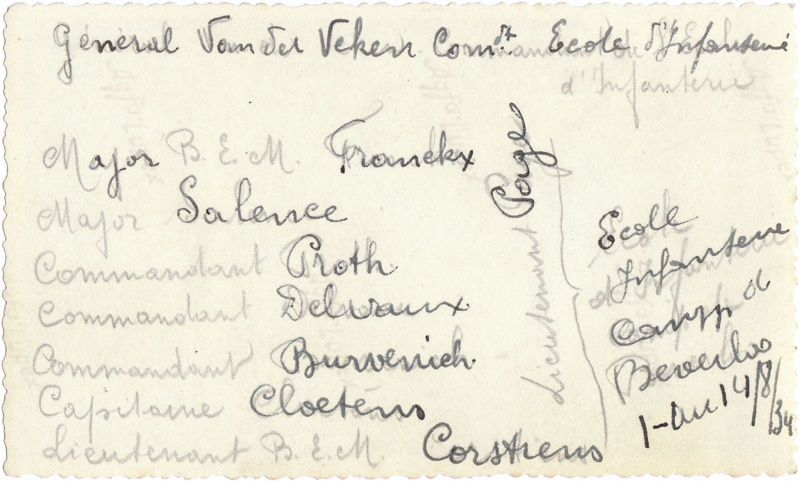 Général Van der Veken Comdt. Ecole d'Infanterie
d'Infanterie
Major B.E.M. Franckx
Major Salence
Commandant Proth
Commandant Delvaux
Commandant Burvenich
Capitaine Cloetens
Lieutenant B.E.M. Corstiens
Lieutenant
Ecole
Infanterie
Camp d
Beverloo
1-au 14/8/34